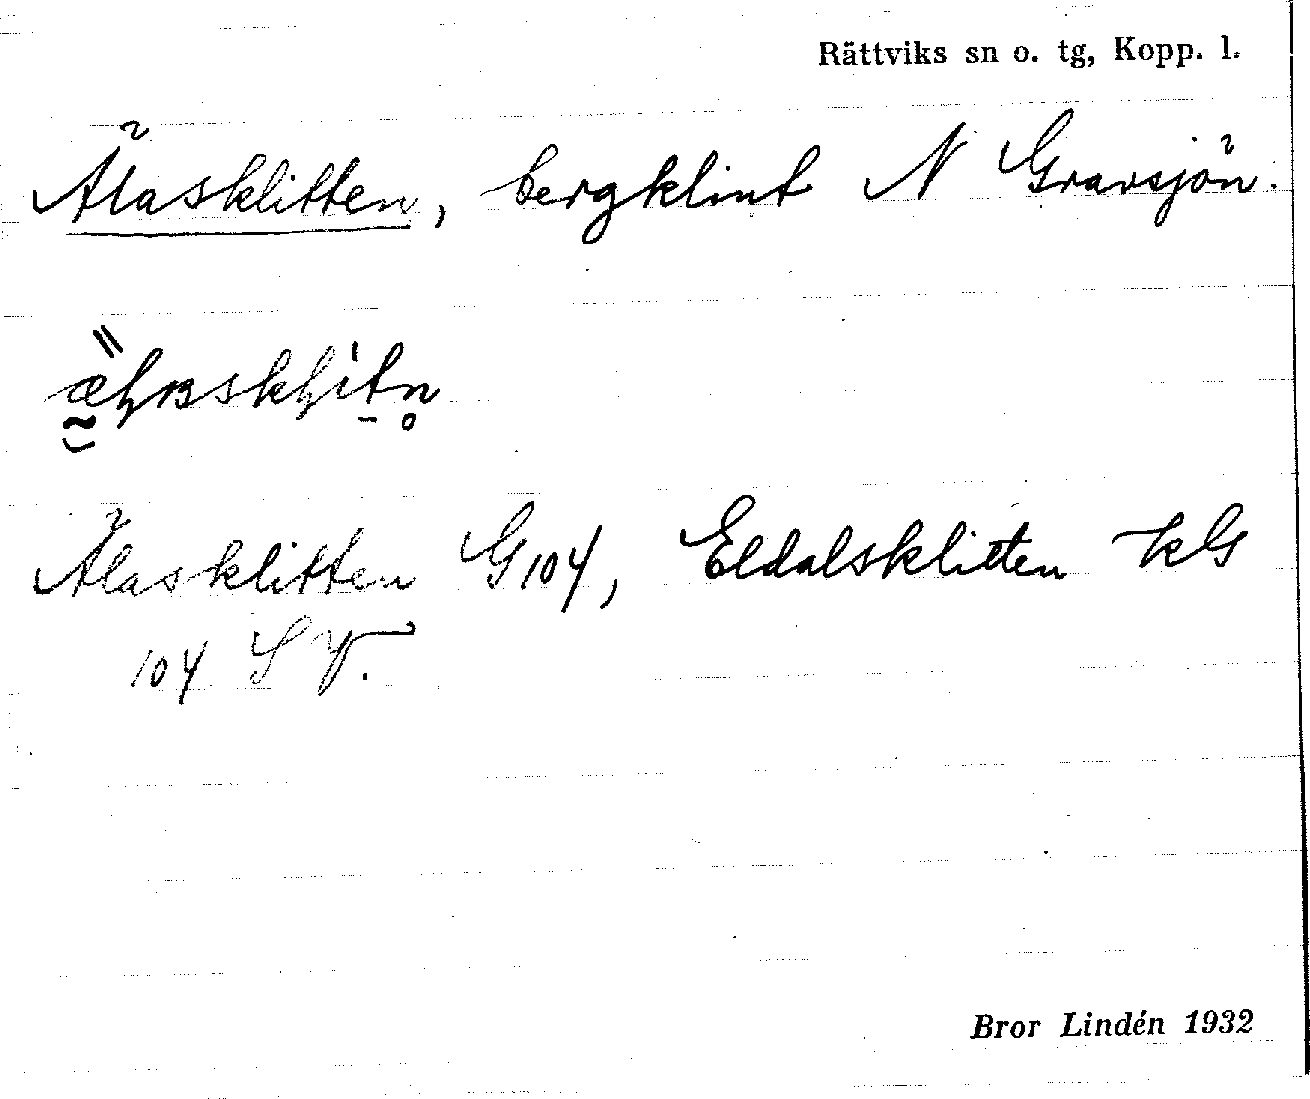 Rättviks sn o. tg, Kopp. l.
Älasklitten, bergklint N Gravsjön.
Älasklitten G 104, Eldalsklitten KG
104 SV.
Bror Lindén 1932